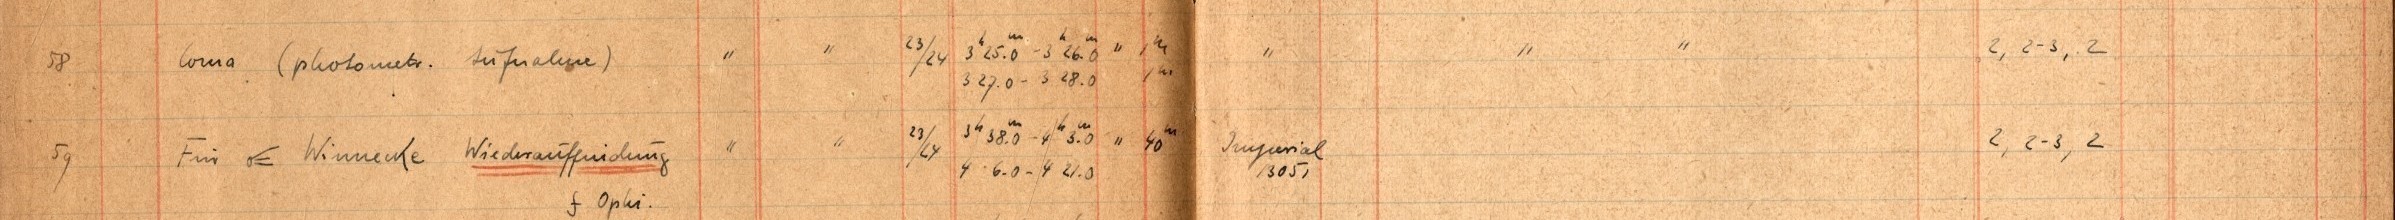 58 Coma (photometr. Aufnahme) " " 23/24 3h 25.0m - 3h 26.0m " 1m " " " 2, 2-3, 2
3 27.0 - 3 28.0 1m
59 Für ☄ Winnecke Wiederauffindung " " 23/24 3h 38.0m - 4h 3.0m " 40m Imperial 2, 2-3, 2
4 6.0 - 4 21.0 1305,
f Ophi.